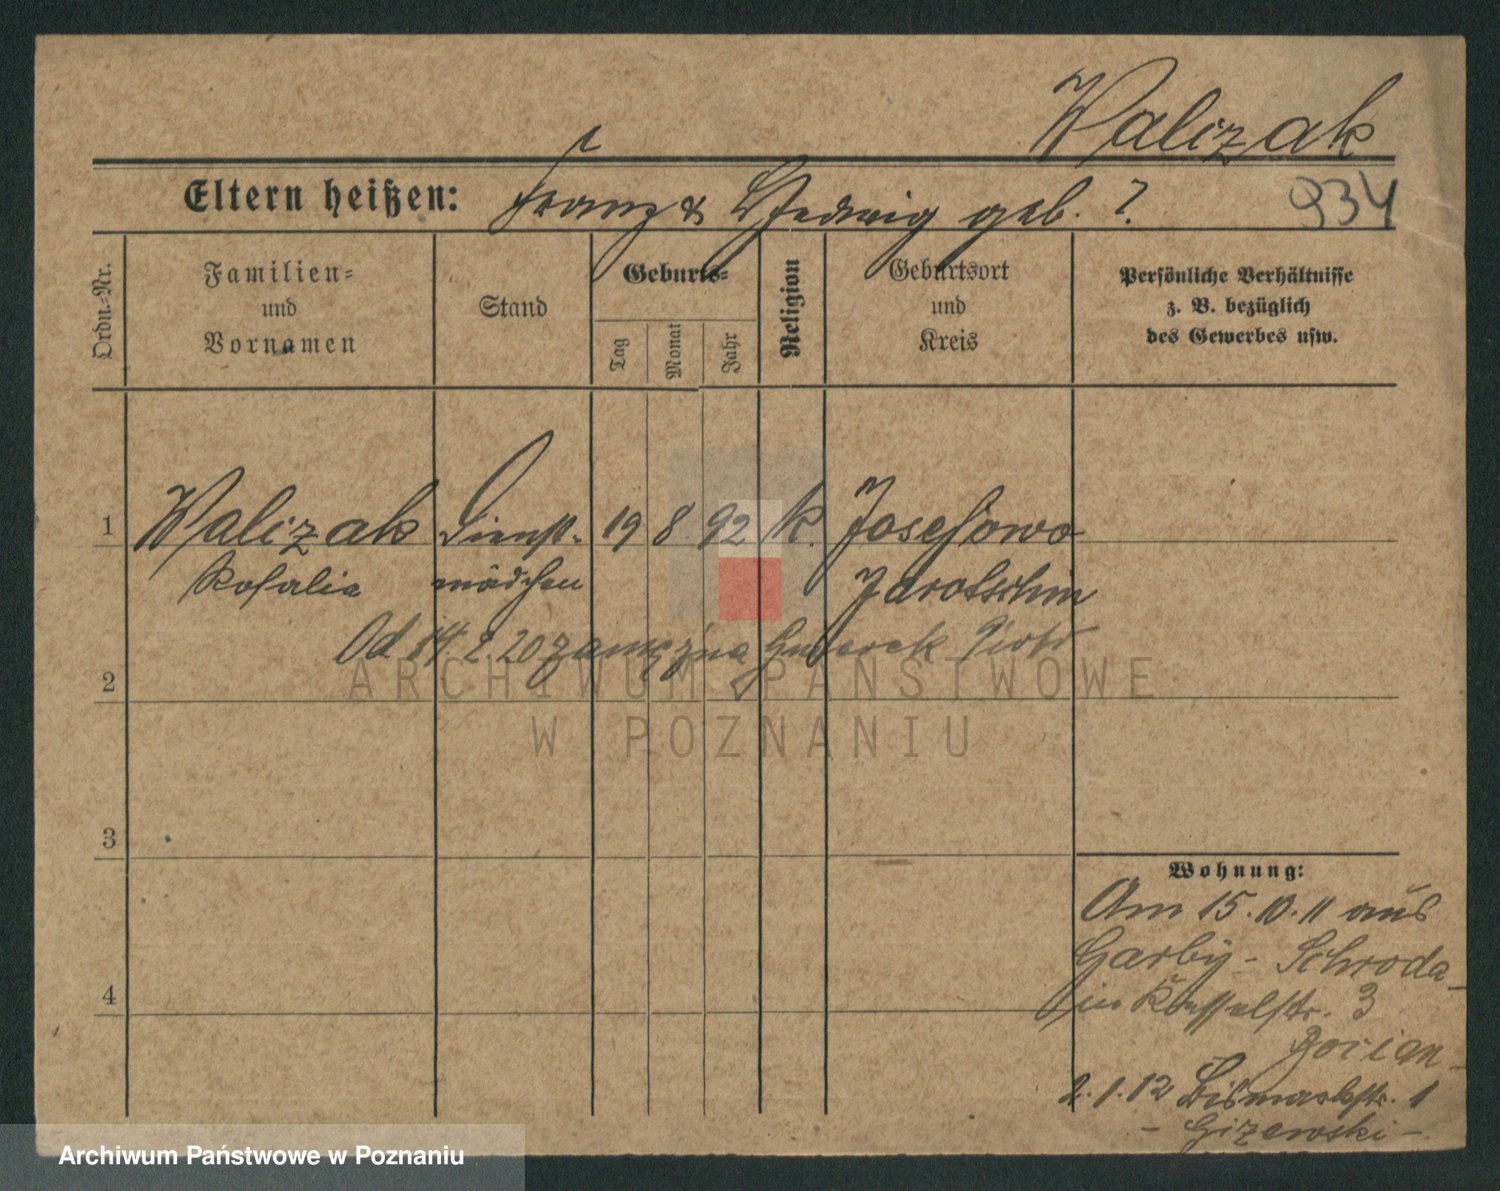 Walczak
Eltern heißen: Franz & Hedwig geb. ?
934
Ordn.-Nr.
Familien-
und
Vornamen
Stand
Geburts-
Tag
Monat
Jahr
Religion
Geburtsort
und
Kreis
Persönliche Verhältnisse
z. B. bezüglich
des Gewerbes usw.
1 Walczak Dienst- 19 8 92 k. Josefowo
Rosalie mädchen Jarotschin
Od 14 2 20 zamężna Piotr
2
ARCHIWUM PAŃSTWOWE
W POZNANIU
3
Wohnung:
Am 15.10.11 aus
Garby - Schroda
4
in 3
2.1.12 Bismarckstr. 1
- Gizewski -
Archiwum Państwowe w Poznaniu